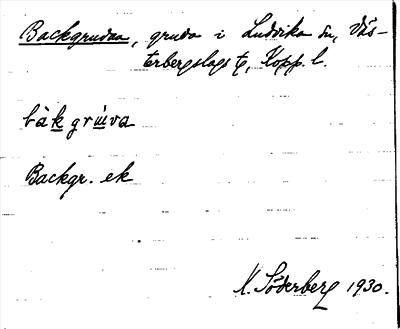 Backgruvan, gruva i Ludvika sn, Väs-
terbergslags tg, Kopp. l.
bàk grúva
Backgr. ek
K. Söderberg 1930.